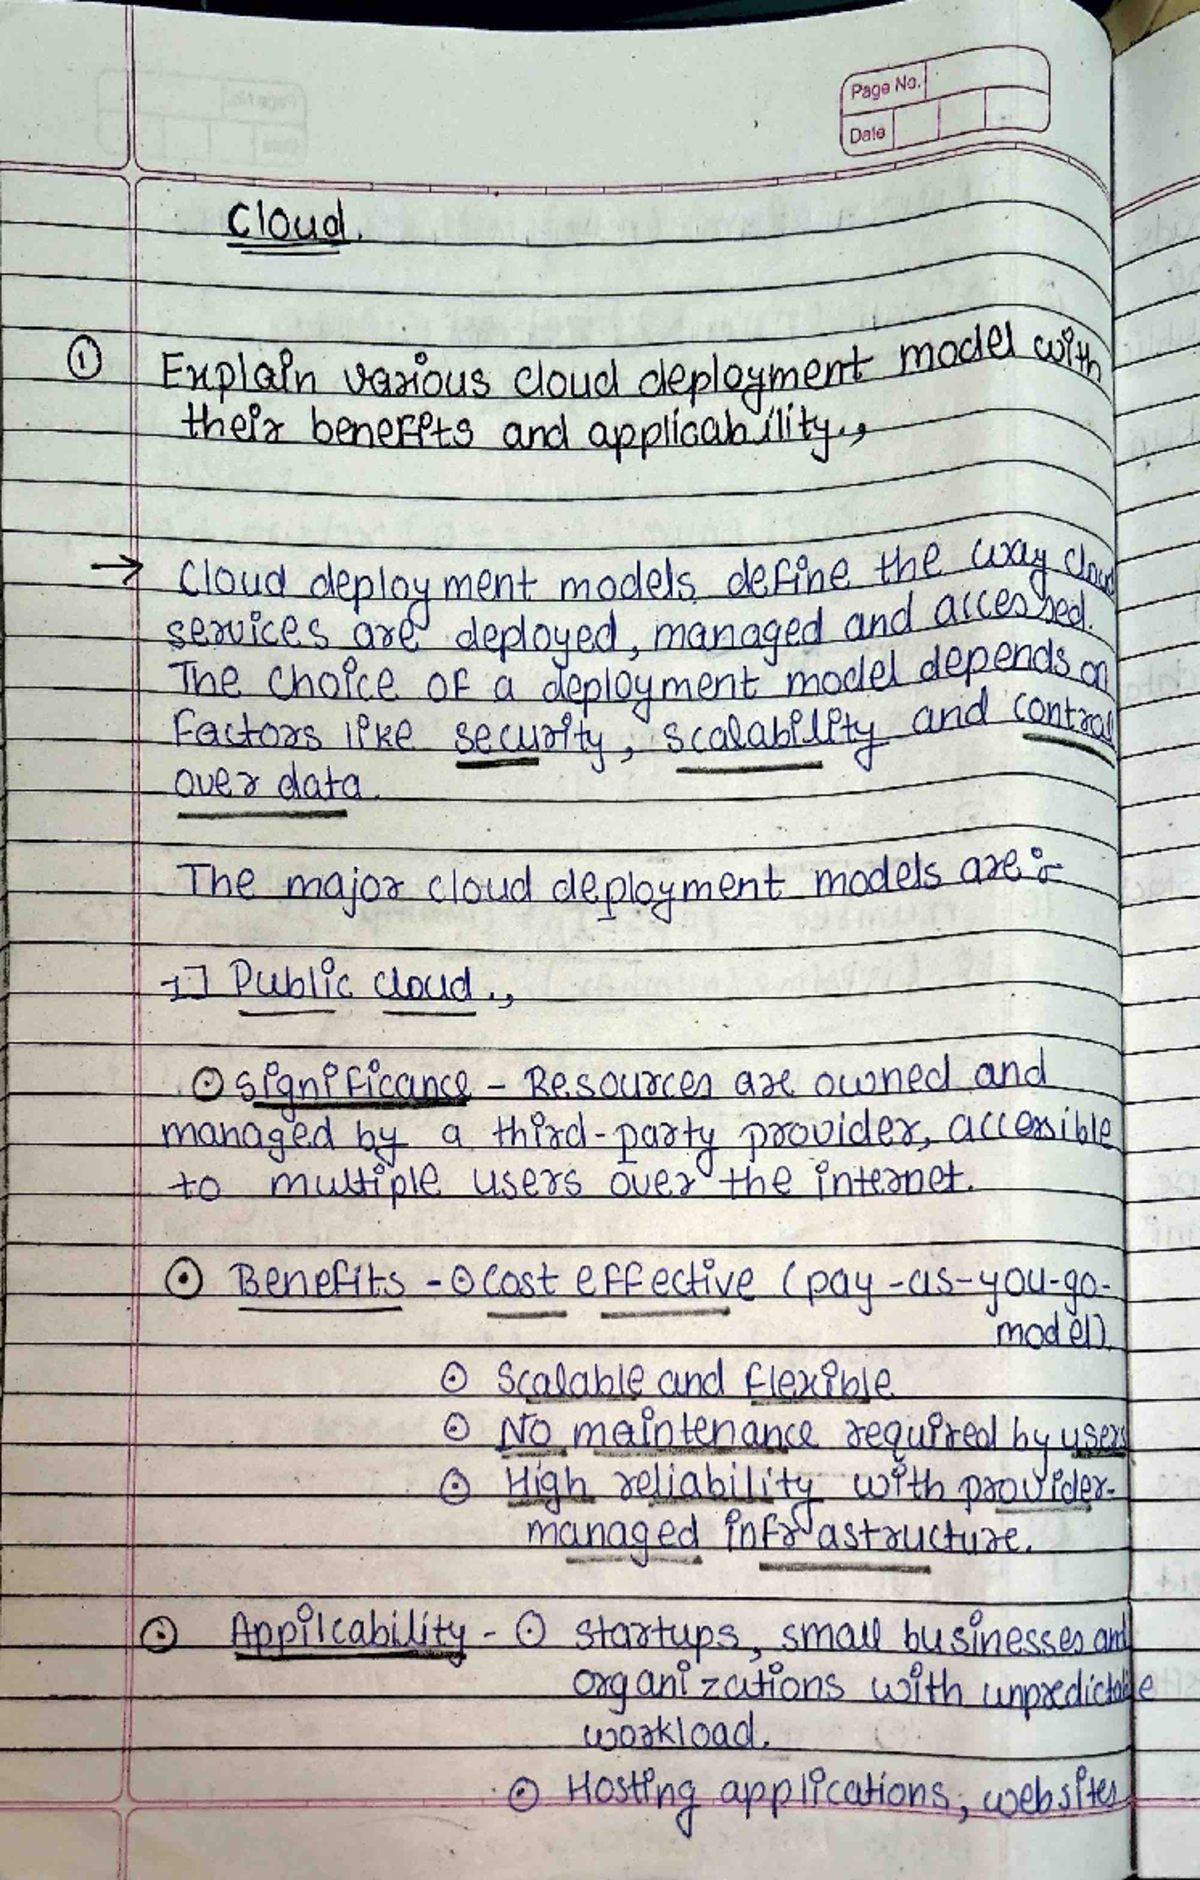 Page No.
Date
Cloud.
① Explain various cloud deployment model with
their benefits and applicability.,
→ Cloud deployment models define the way cloud
services are deployed, managed and accessed.
The choice of a deployment model depends on
factors like security, scalability and control
over data.
The major cloud deployment models are :-
1] Public cloud.,
⊙ Significance - Resources are owned and
managed by a third-party provider, accessible
to multiple users over the internet.
⊙ Benefits - ⊙ Cost effective (pay-as-you-go-
model).
⊙ Scalable and flexible
⊙ No maintenance required by users
⊙ High reliability with provider-
managed infrastructure.
⊙ Appilcability - ⊙ startups, small businesses and
organizations with unpredictable
workload.
⊙ Hosting applications, websites